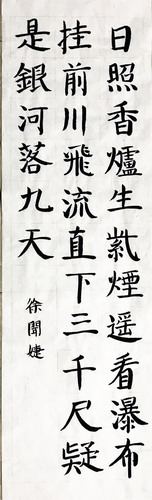 日照香爐生紫煙遥看瀑布
挂前川飛流直下三千尺疑
是銀河落九天
徐聞婕